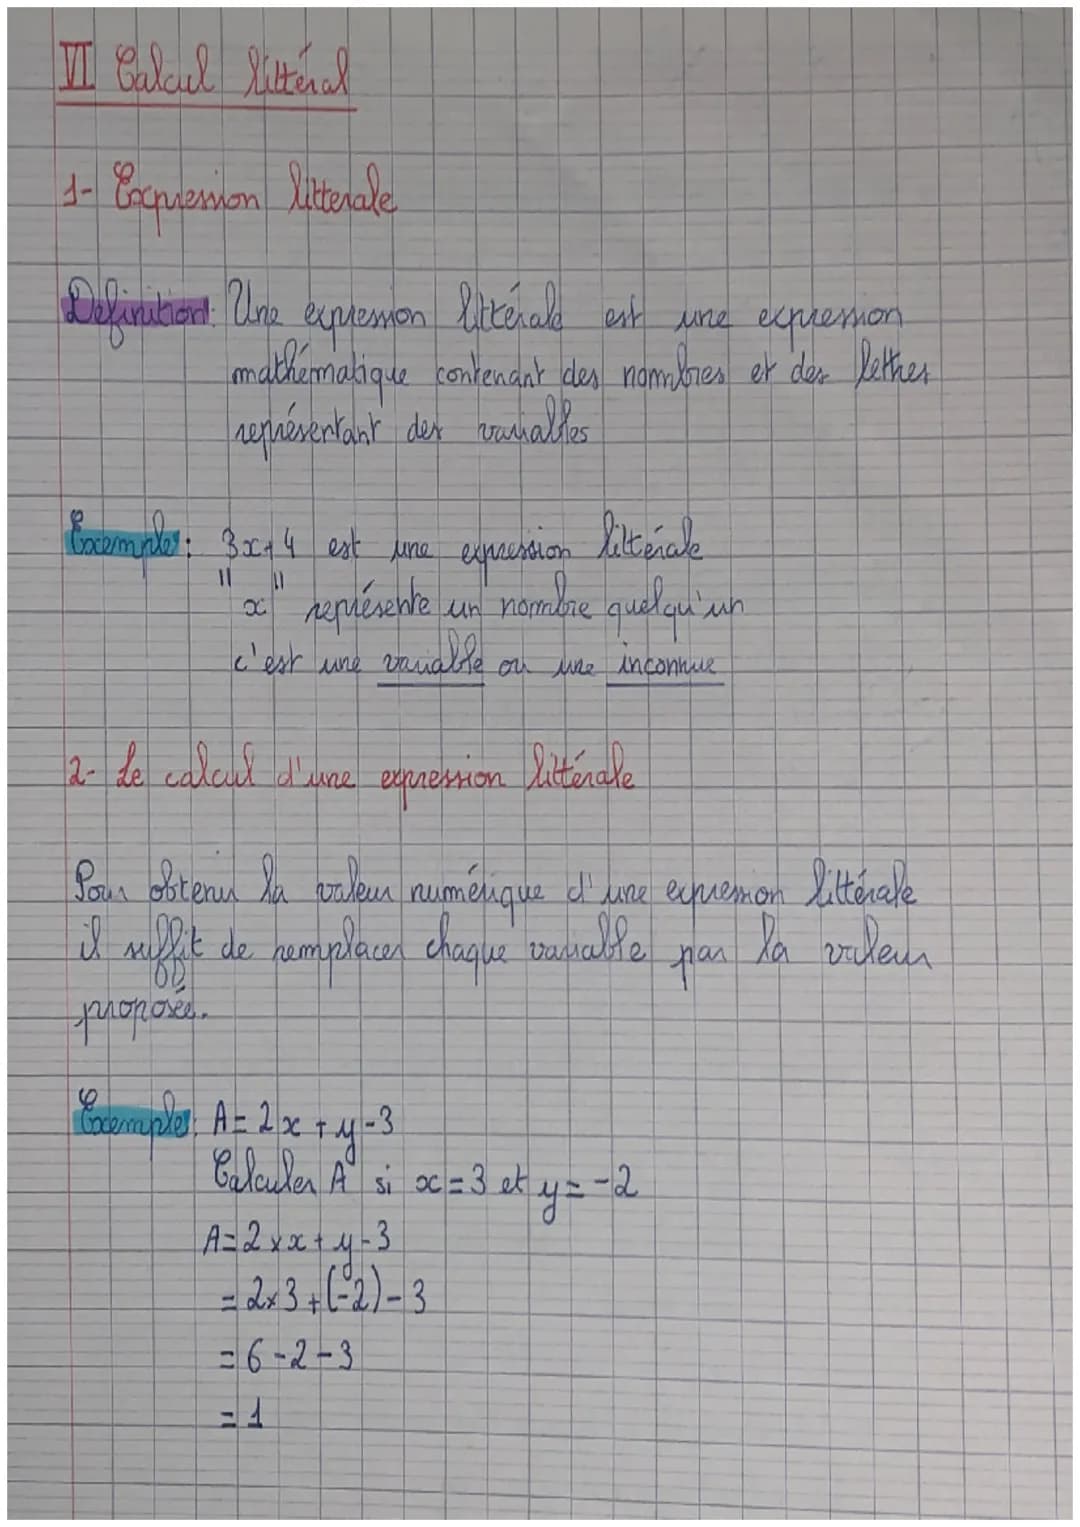 VI Calcul littéral
1- Expression litterale
Définition: Une expression littérale est une expression
mathématique contenant des nombres et des lettres
représentant des variables
Exemple: 3x+4 est une expression littérale
"x" représente un nombre quelqu'un
c'est une variable ou une inconnue
2- Le calcul d'une expression littérale
Pour obtenir la valeur numérique d'une expression littérale
il suffit de remplacer chaque variable par la valeur
proposée.
Exemple: A= 2x + y-3
Calculer A si x=3 et y=-2
A=2×x+y-3
=2×3+(-2)-3
=6-2-3
=1